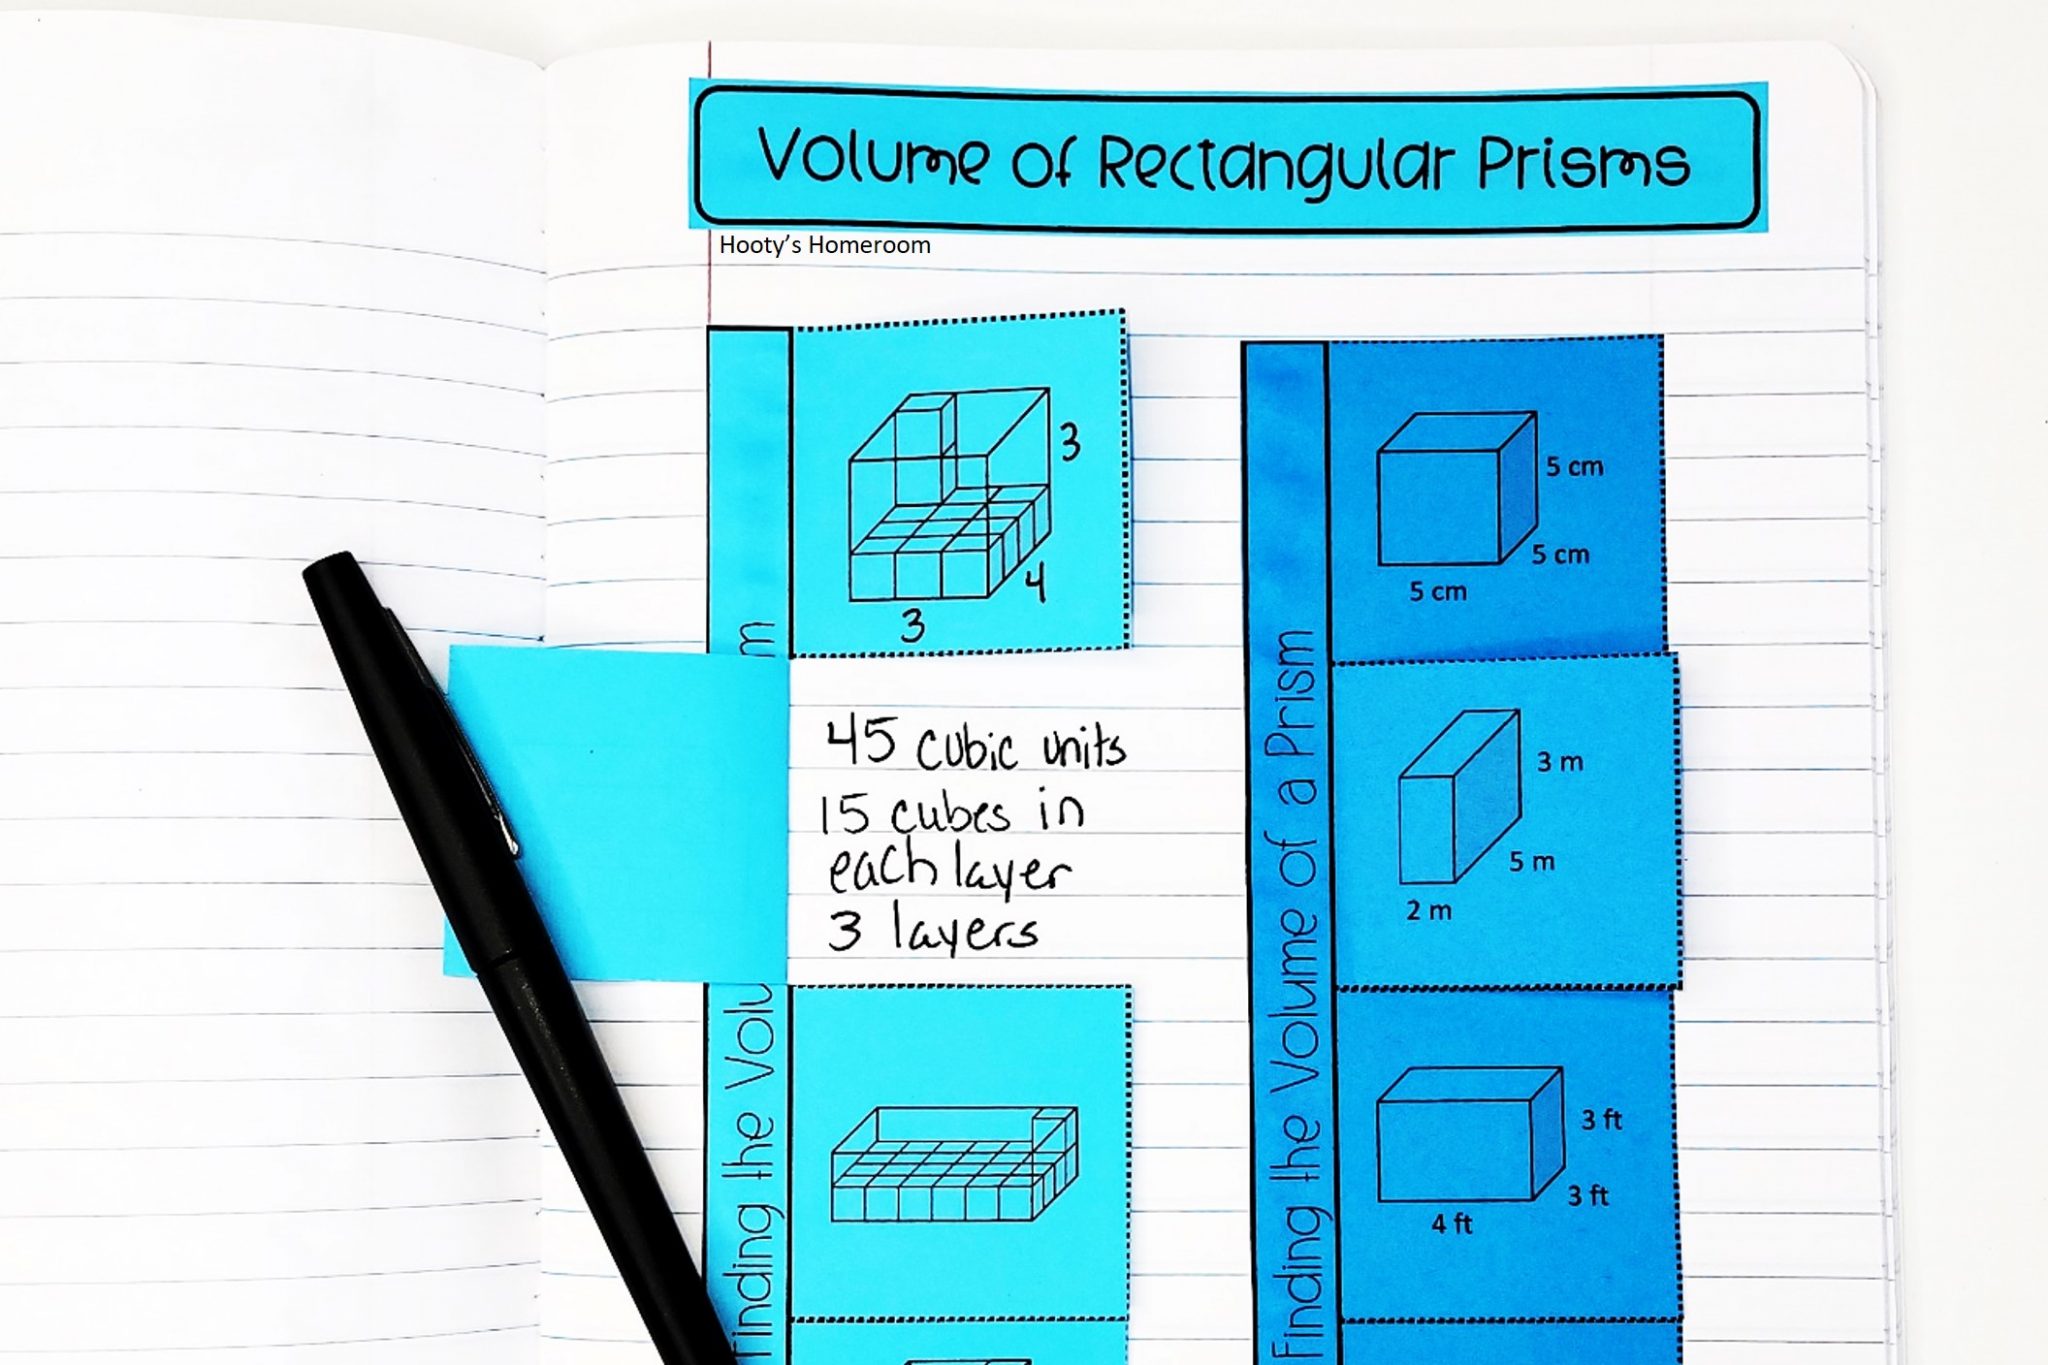 Volume of Rectangular Prisms
Hooty's Homeroom
3
4
3
45 cubic units
15 cubes in
each layer
3 layers
m
Finding the Volu
Finding the Volume of a Prism
5 cm
5 cm
5 cm
3 m
5 m
2 m
3 ft
3 ft
4 ft